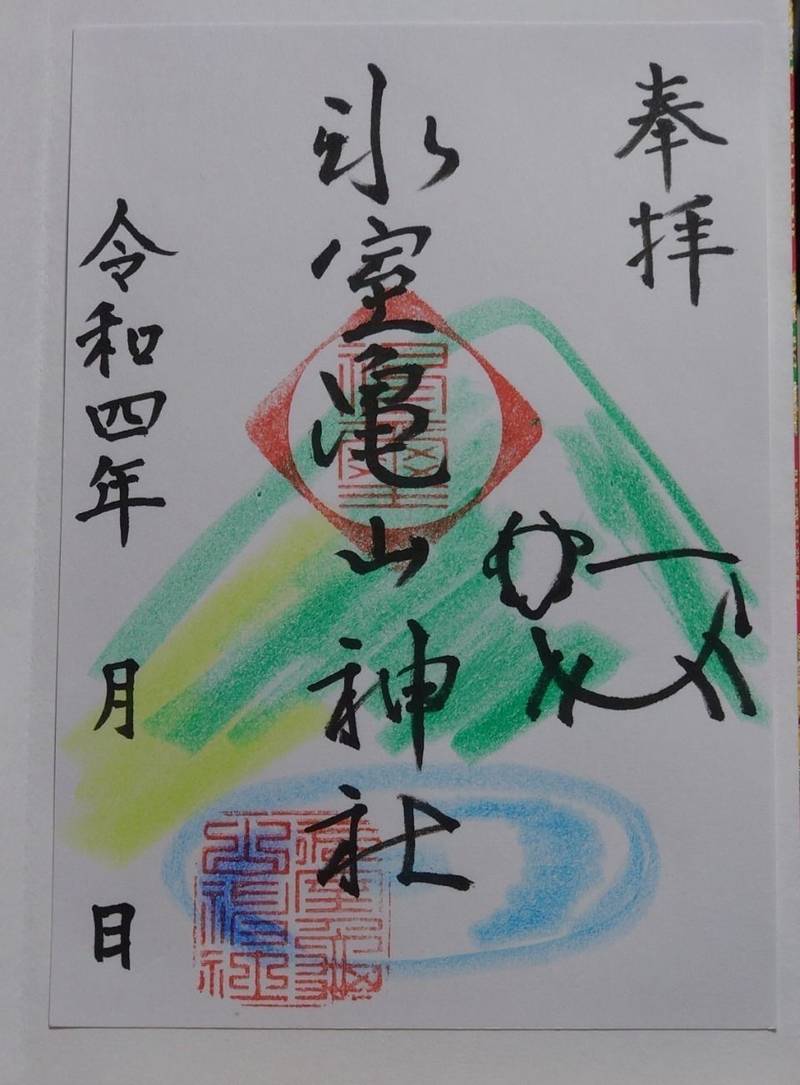 奉拝
氷室亀山神社
令和四年 月 日